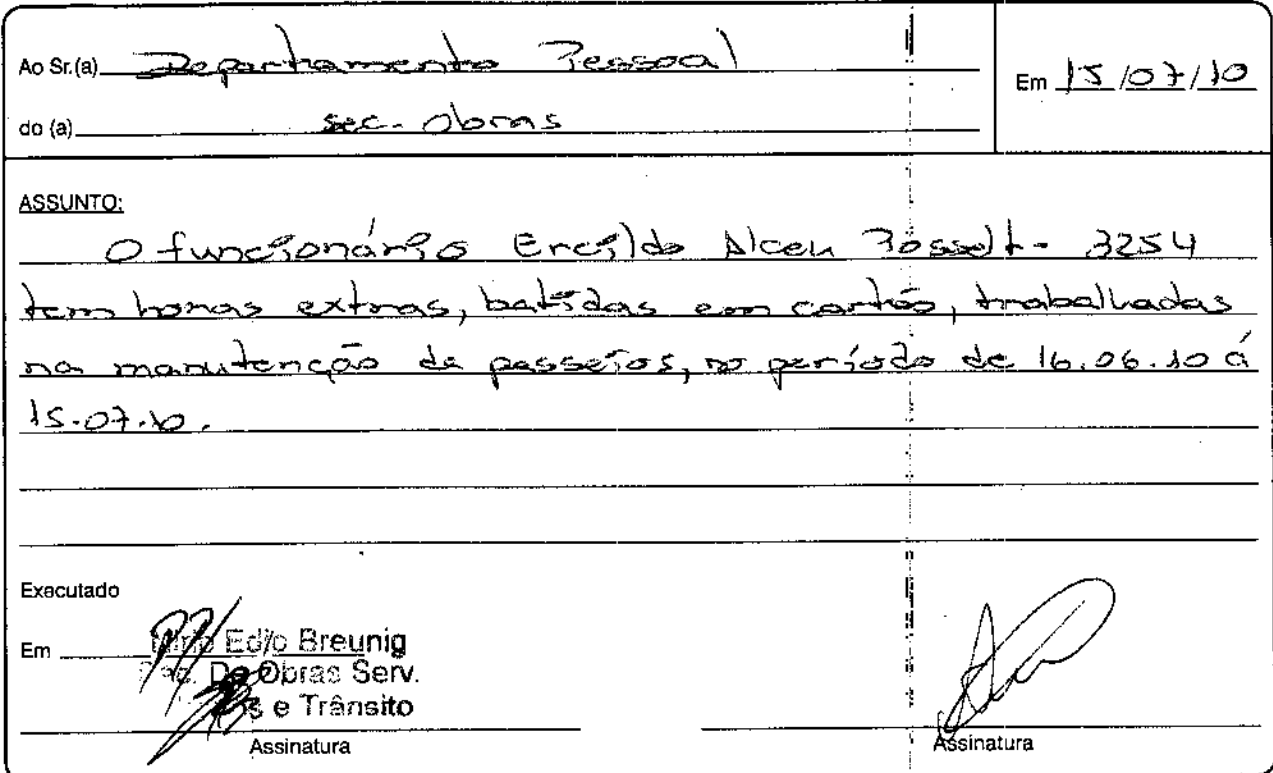 Ao Sr.(a) Departamento Pessoal
Em 15/07/10
do (a) sec. Obras
ASSUNTO:
O funcionário Ercildo Alceu Posselt - 3254
tem horas extras, batidas em cartão, trabalhadas
na manutenção de passeios, no período de 16.06.10 á
15.07.10.
Executado
Em
Edio Breunig
De Obras Serv.
e Trânsito
Assinatura
Assinatura